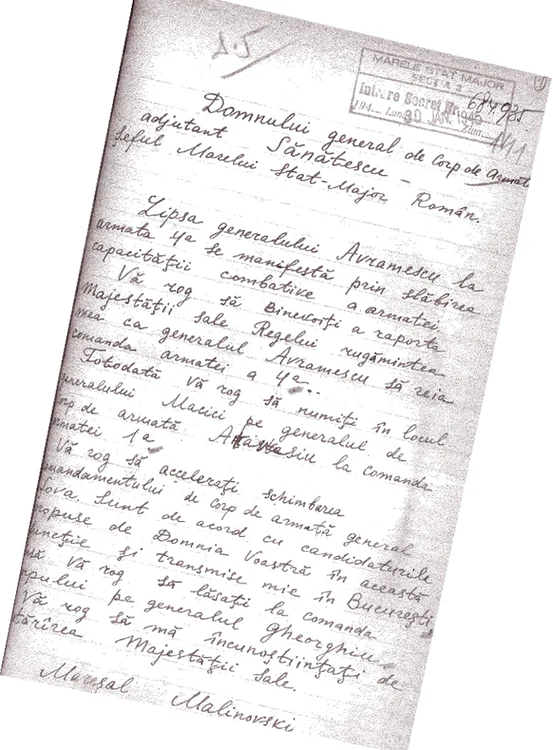 MARELE STAT MAJOR
SECŢIA 3
Intrare Secret Nr. 684925
194 Luna JAN. 1945 Ziua
Domnului general de Corp de Armată
adjutant Sănătescu –
Şeful Marelui Stat-Major Român.
Lipsa generalului Avramescu la
armata 4a se manifestă prin slăbirea
capacităţii combative a armatei.
Vă rog să binevoiţi a raporta
Majestăţii Sale Regelui rugămintea
mea ca generalul Avramescu să reia
comanda armatei a 4a.
Totodată vă rog să numiţi în locul
generalului Macici pe generalul de
corp de armată Atanasiu la comanda
armatei 1a
Vă rog să acceleraţi schimbarea
comandamentului de corp de armată general
Iova. Sunt de acord cu candidaturile
propuse de Domnia Voastră în această
funcţie şi transmise mie în Bucureşti
însă vă rog să lăsaţi la comanda
corpului pe generalul Gheorghiu.
Vă rog să mă încunoştiinţaţi de
hotărîrea Majestăţii Sale.
Mareşal Malinovski